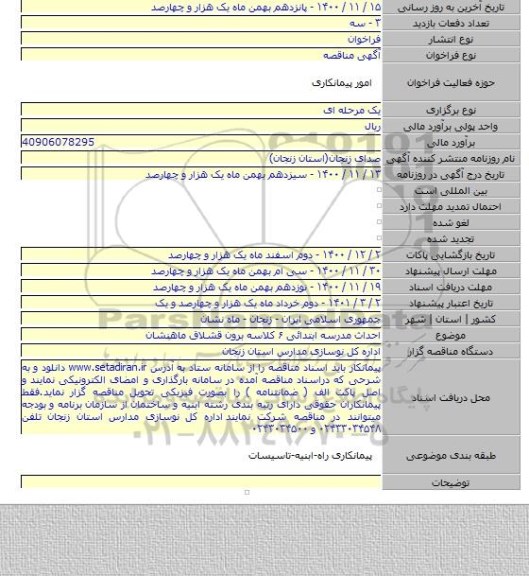 تاریخ آخرین به روز رسانی ۱۵ / ۱۱ / ۱۴۰۰ - پانزدهم بهمن ماه یک هزار و چهارصد
تعداد دفعات بازدید ۳ - سه
نوع انتشار فراخوان
نوع فراخوان آگهی مناقصه
حوزه فعالیت فراخوان امور پیمانکاری
نوع برگزاری یک مرحله ای
واحد پولی برآورد مالی ریال
برآورد مالی 40906078295
نام روزنامه منتشر کننده آگهی صدای زنجان(استان زنجان)
تاریخ درج آگهی در روزنامه ۱۳ / ۱۱ / ۱۴۰۰ - سیزدهم بهمن ماه یک هزار و چهارصد
بین المللی است
احتمال تمدید مهلت دارد
لغو شده
تجدید شده
تاریخ بازگشایی پاکات ۲ / ۱۲ / ۱۴۰۰ - دوم اسفند ماه یک هزار و چهارصد
مهلت ارسال پیشنهاد ۳۰ / ۱۱ / ۱۴۰۰ - سی ام بهمن ماه یک هزار و چهارصد
مهلت دریافت اسناد ۱۹ / ۱۱ / ۱۴۰۰ - نوزدهم بهمن ماه یک هزار و چهارصد
تاریخ اعتبار پیشنهاد ۲ / ۳ / ۱۴۰۱ - دوم خرداد ماه یک هزار و چهارصد و یک
کشور | استان | شهر جمهوری اسلامی ایران - زنجان - ماه نشان
موضوع احداث مدرسه ابتدائی ۶ کلاسه برون قشلاق ماهنشان
دستگاه مناقصه گزار اداره کل نوسازی مدارس استان زنجان
پیمانکار باید اسناد مناقصه را از سامانه ستاد به آدرس www.setadiran.ir دانلود و به
شرحی که دراسناد مناقصه آمده در سامانه بارگذاری و امضای الکترونیکی نمایند و
محل دریافت اسناد اصل پاکت الف ( ضمانتنامه ) را بصورت فیزیکی تحویل مناقصه گزار نماید.فقط
پیمانکاران حقوقی دارای رتبه بندی رشته ابنیه و ساختمان از سازمان برنامه و بودجه
میتوانند در مناقصه شرکت نمایند اداره کل نوسازی مدارس استان زنجان تلفن
۰۲۴۳۳۰۳۴۵۴۸ و ۰۲۴۳۰۳۴۵۰۰
طبقه بندی موضوعی پیمانکاری راه-ابنیه-تاسیسات
توضیحات
ParsNamadData
۰۲۱-۸۸۳۴۹۶۷۰-۵